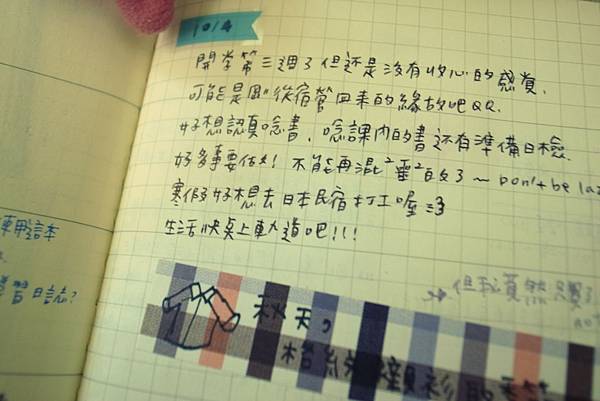 10/4
開学第三週了但还是沒有收心的感覚.
可能是剛從宿營回來的緣故吧QQ.
好想認真唸書, 唸課內的書还有準備日檢.
好多事要做! 不能再混²噩²白勺了~ Don't be la
寒假好想去日本民宿打工喔=3
生活快桌上軌道吧!!!
專用這本
習日誌?
但我竟然只買了
秋天,
格紋襯衫的季節